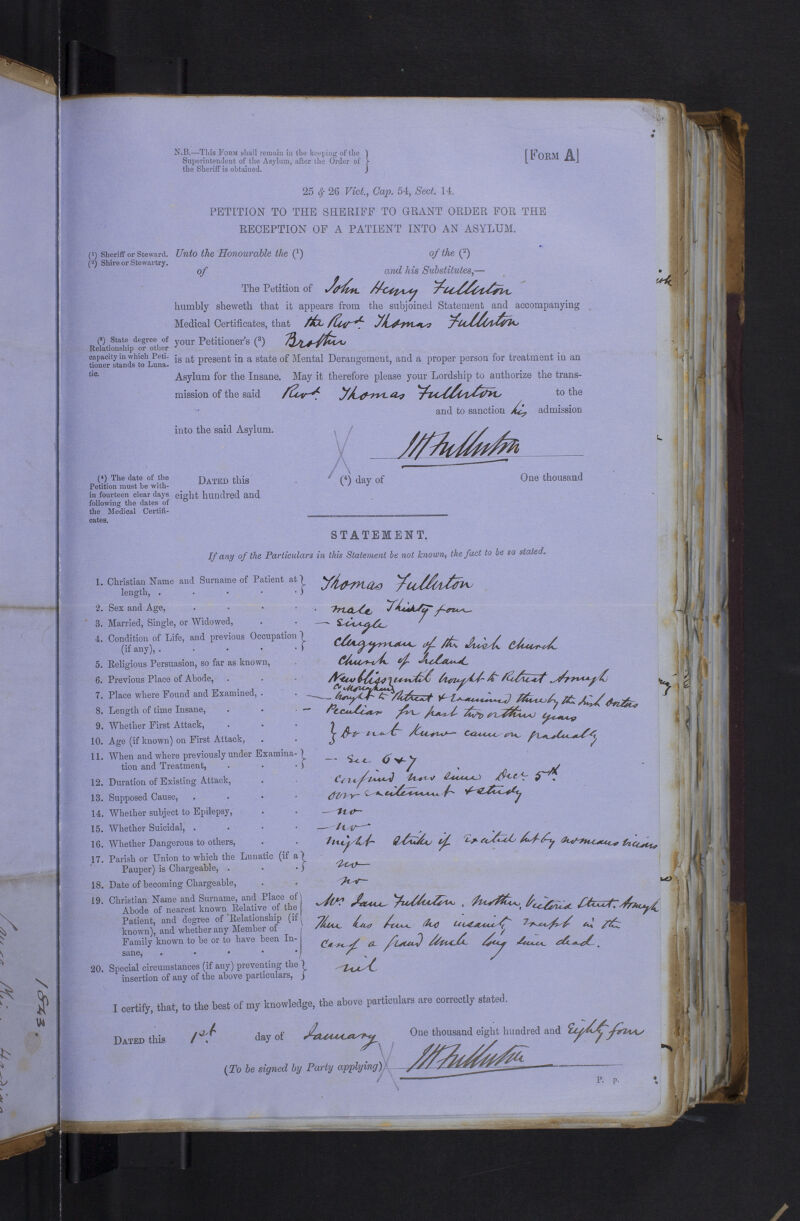 N.B.—This Form shall remain in the keeping of the
Superintendent of the Asylum, after the Order of
the Sheriff is obtained.
[Form A]
25 & 26 Vict., Cap. 54, Sect. 14.
PETITION TO THE SHERIFF TO GRANT ORDER FOR THE
RECEPTION OF A PATIENT INTO AN ASYLUM.
(1) Sheriff or Steward.
(2) Shire or Stewartry.
Unto the Honourable the (1) of the (2)
of and his Substitutes,—
The Petition of John Henry Fullerton
humbly sheweth that it appears from the subjoined Statement and accompanying
Medical Certificates, that the Revd. Thomas Fullerton
(3) State degree of
Relationship or other
capacity in which Peti-
tioner stands to Luna-
tic.
your Petitioner's (3) Brother
is at present in a state of Mental Derangement, and a proper person for treatment in an
Asylum for the Insane. May it therefore please your Lordship to authorize the trans-
mission of the said Revd. Thomas Fullerton to the
and to sanction his admission
into the said Asylum.
JH Fullerton
(4) The date of the
Petition must be with-
in fourteen clear days
following the dates of
the Medical Certifi-
cates.
Dated this (4) day of One thousand
eight hundred and
STATEMENT.
If any of the Particulars in this Statement be not known, the fact to be so stated.
1. Christian Name and Surname of Patient at
length, . Thomas Fullerton
2. Sex and Age, male Thirty four
3. Married, Single, or Widowed, – Single
4. Condition of Life, and previous Occupation
(if any), . Clergyman of the Irish Church
5. Religious Persuasion, so far as known, Church of Ireland
6. Previous Place of Abode, Newbliss until brought to Retreat Armagh
Co Monaghan
7. Place where Found and Examined, brought to Retreat & Examined there by the Irish Doctors
8. Length of time Insane, – Peculiar for past two or three years
9. Whether First Attack,
10. Age (if known) on First Attack, } Do not know came on gradually
11. When and where previously under Examina-
tion and Treatment, – See 6 & 7
12. Duration of Existing Attack, Confined now since Decr 5th.
13. Supposed Cause, over excitement & study
14. Whether subject to Epilepsy, – no
15. Whether Suicidal, – no
16. Whether Dangerous to others, might strike if excited but by no means vicious
17. Parish or Union to which the Lunatic (if a
Pauper) is Chargeable, no
18. Date of becoming Chargeable, no
19. Christian Name and Surname, and Place of
Abode of nearest known Relative of the
Patient, and degree of Relationship (if
known), and whether any Member of
Family known to be or to have been In-
sane,
Mrs. Jane Fullerton, Mother, Victoria Street. Armagh
There has been no insanity except in the
case of a grand Uncle long since dead.
20. Special circumstances (if any) preventing the
insertion of any of the above particulars, nil
I certify, that, to the best of my knowledge, the above particulars are correctly stated.
Dated this 1st. day of January One thousand eight hundred and Eighty four
(To be signed by Party applying) JH Fullerton
P. P.
1843.